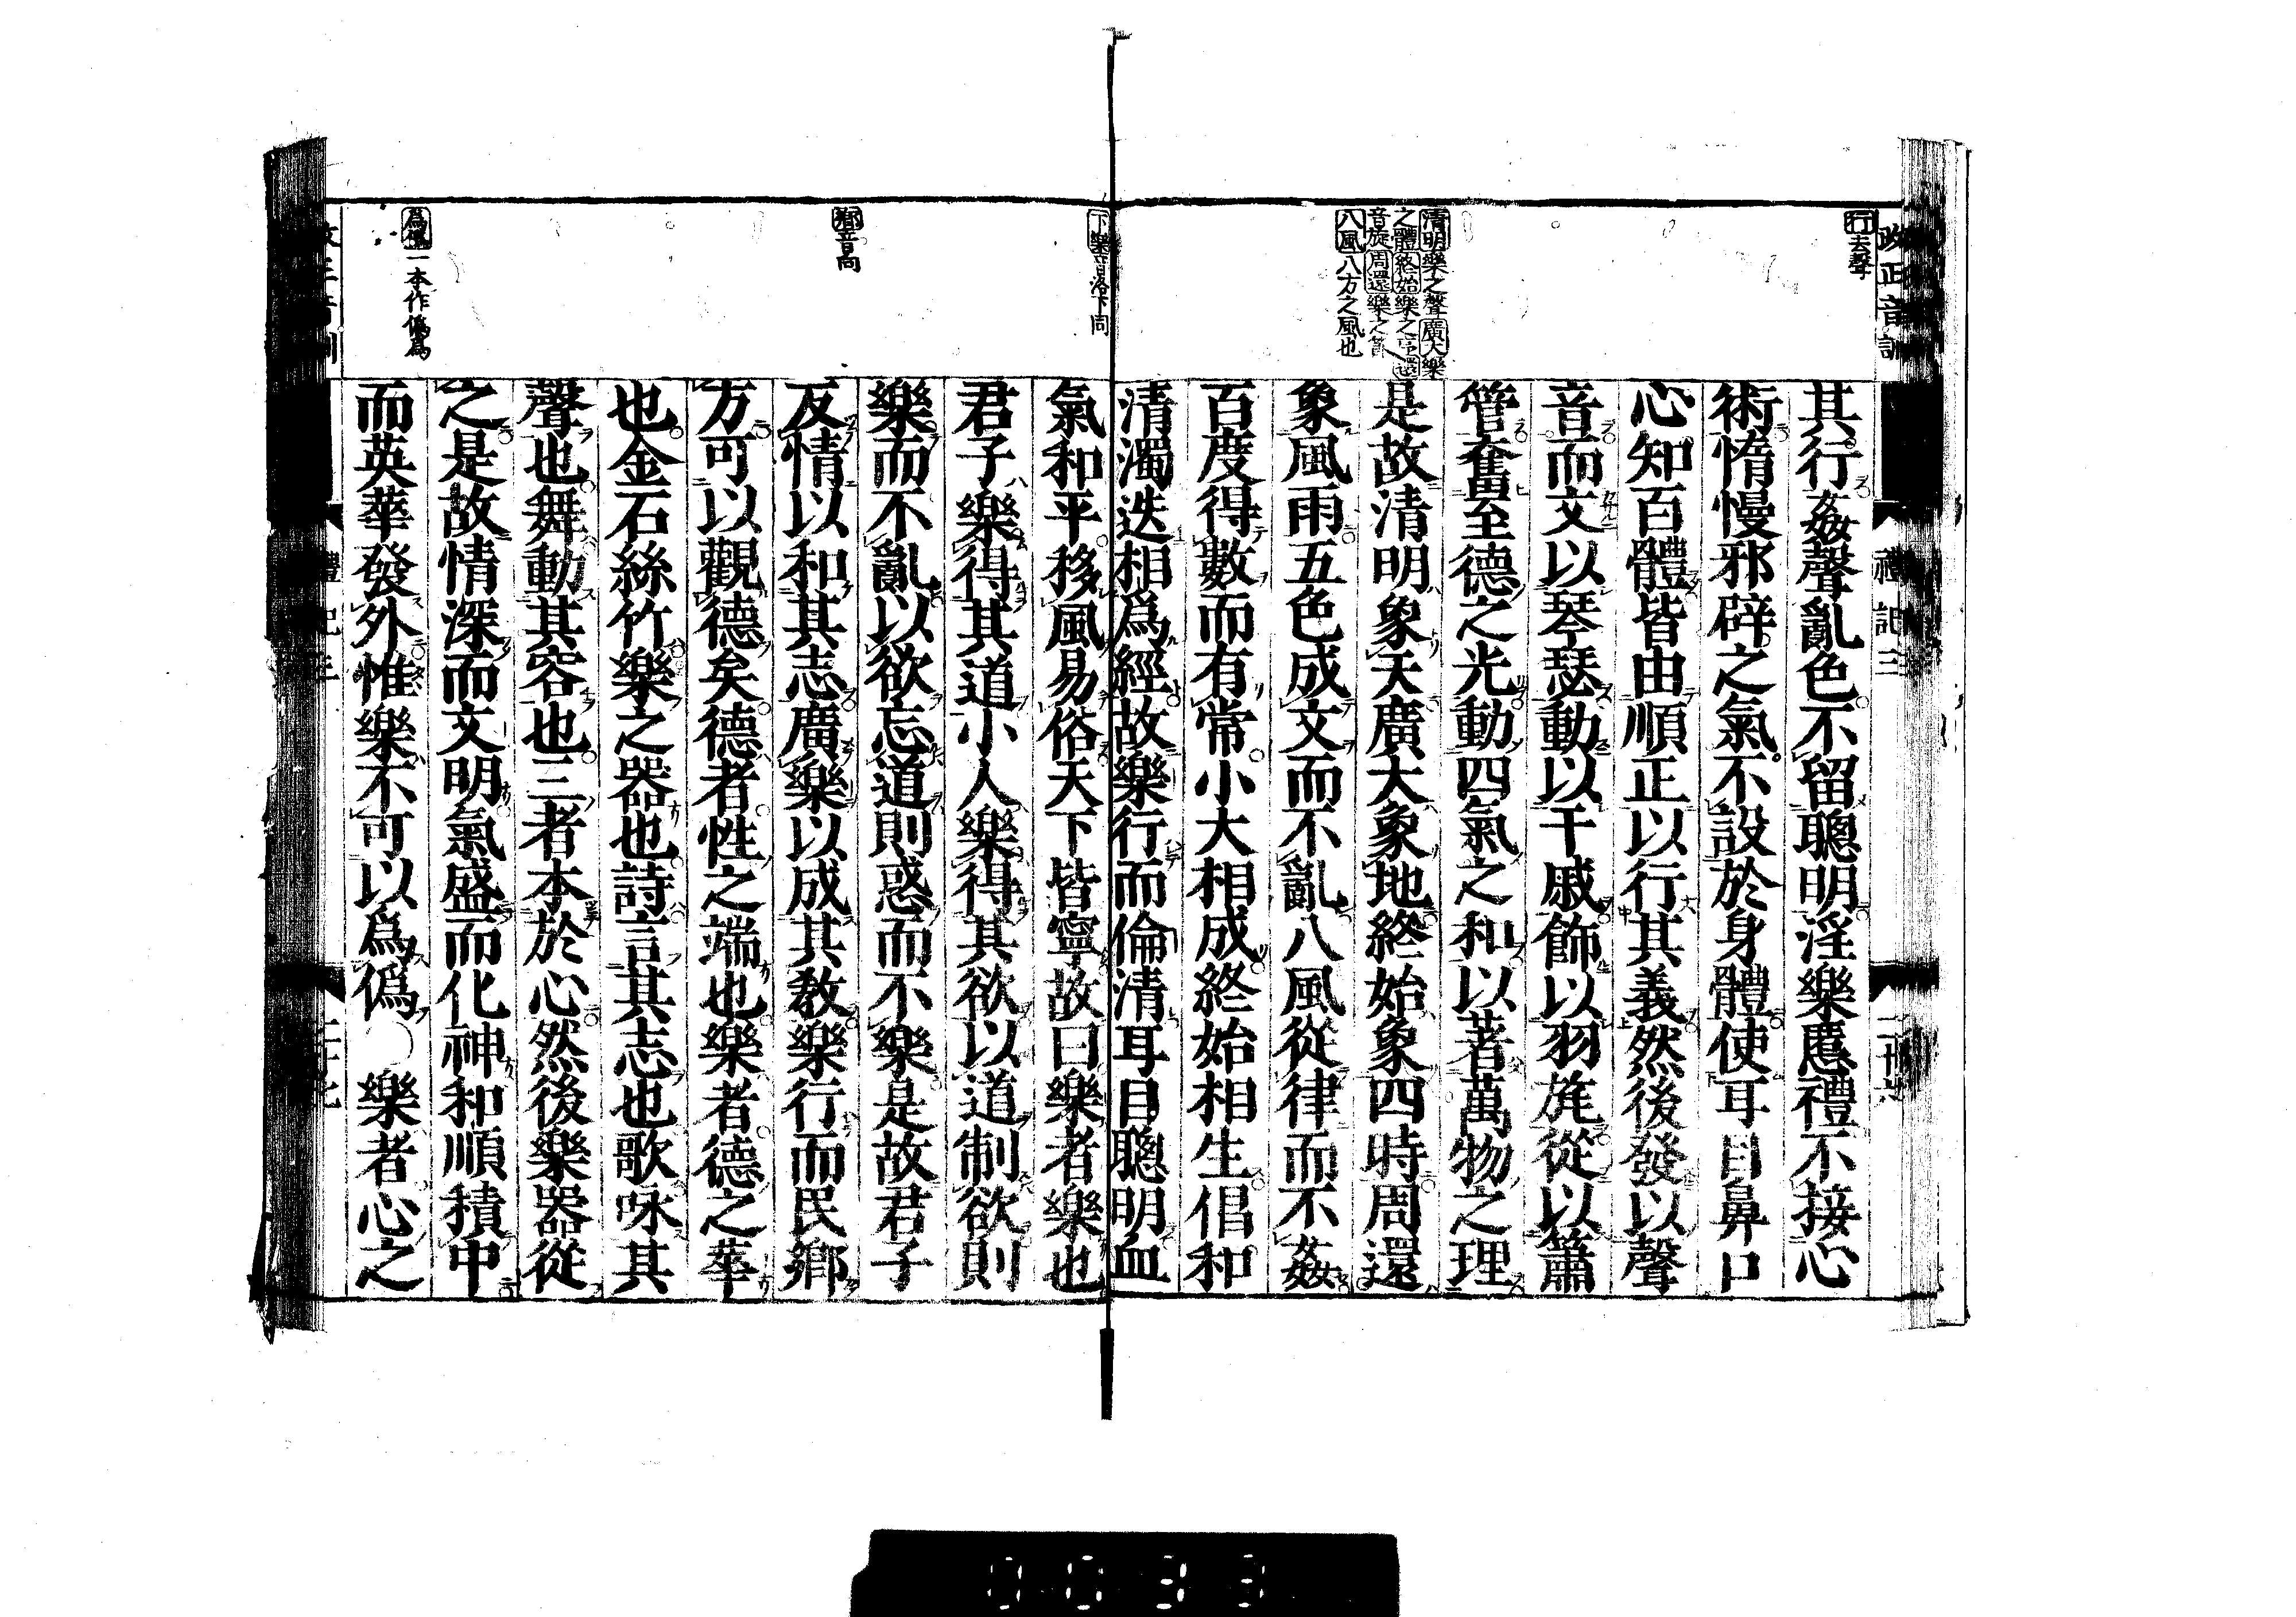 改正音訓
禮記三
二十六
行去聲
清明樂之聲廣大樂
之體終始樂之序還
音旋周還樂之節
八風八方之風也
其行姦聲亂色不留聰明淫樂慝禮不接心
術惰慢邪辟之氣不設於身體使耳目鼻口
心知百體皆由順正以行其義然後發以聲
音而文以琴瑟動以干戚飾以羽旄從以簫
管奮至德之光動四氣之和以著萬物之理
是故清明象天廣大象地終始象四時周還
象風雨五色成文而不亂八風從律而不姦
百度得數而有常小大相成終始相生倡和
清濁迭相爲經故樂行而倫清耳目聰明血
下樂音洛下同
鄉音向
爲僞一本作僞爲
氣和平移風易俗天下皆寧故曰樂者樂也
君子樂得其道小人樂得其欲以道制欲則
樂而不亂以欲忘道則惑而不樂是故君子
反情以和其志廣樂以成其教樂行而民鄉
方可以觀德矣德者性之端也樂者德之華
也金石絲竹樂之器也詩言其志也歌咏其
聲也舞動其容也三者本於心然後樂器從
之是故情深而文明氣盛而化神和順積中
而英華發外惟樂不可以爲僞○樂者心之
禮記三
0033